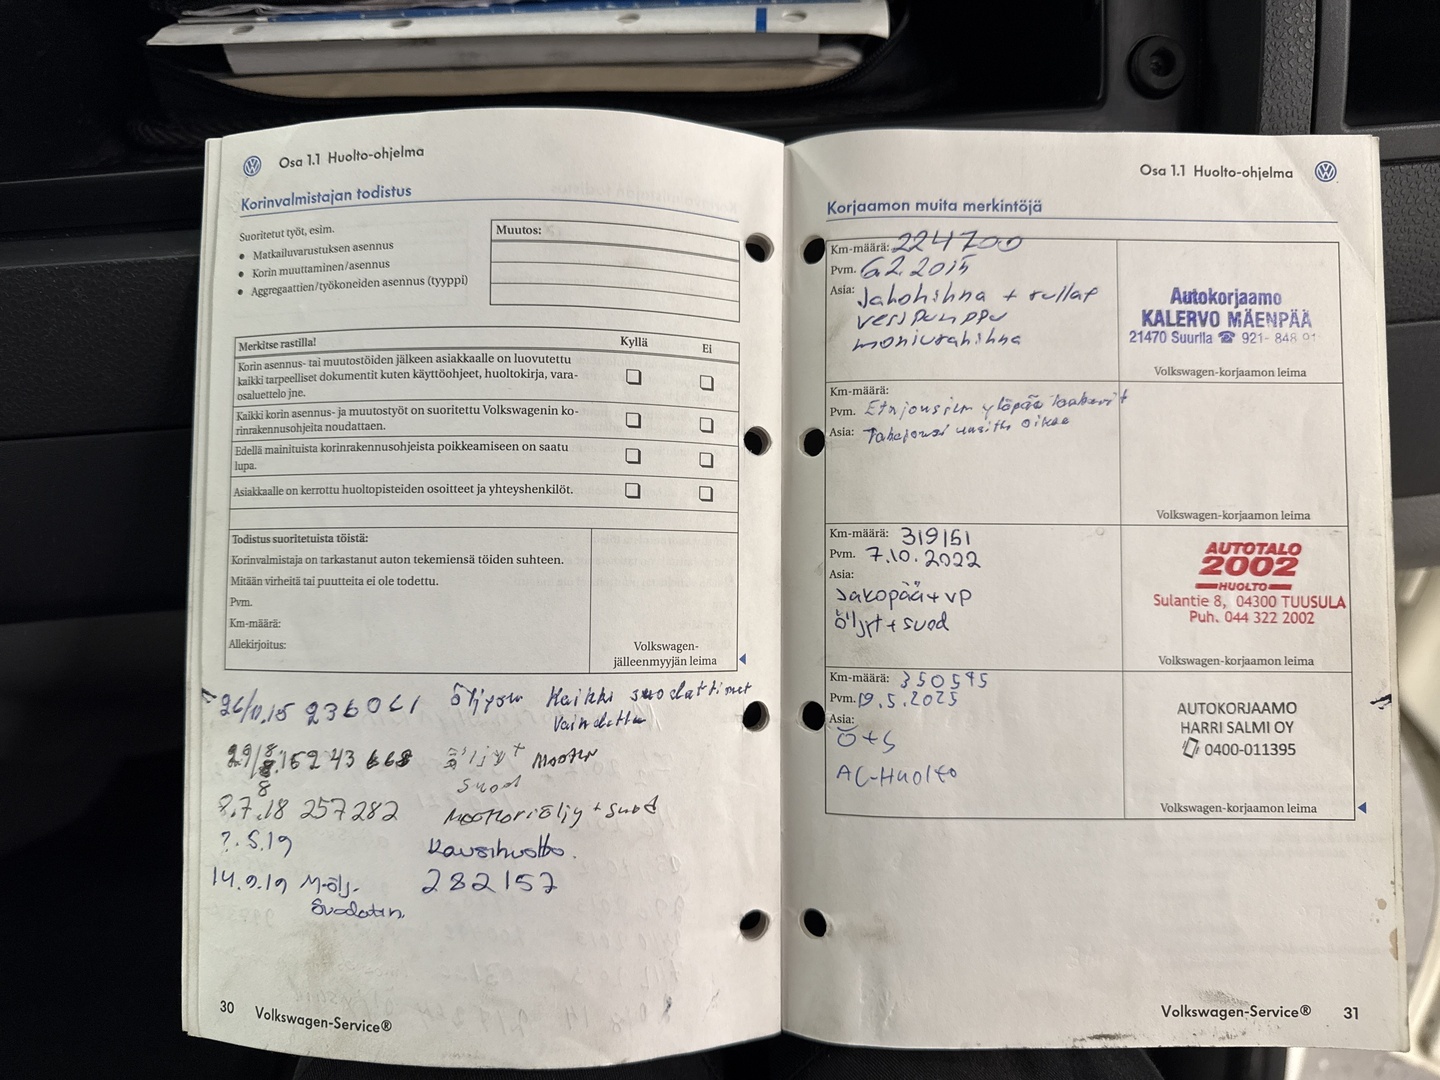 Osa 1.1 Huolto-ohjelma
Korinvalmistajan todistus
Suoritetut työt, esim.
• Matkailuvarustuksen asennus
• Korin muuttaminen/asennus
• Aggregaattien/työkoneiden asennus (tyyppi)
Muutos:
Merkitse rastilla! Kyllä Ei
Korin asennus- tai muutostöiden jälkeen asiakkaalle on luovutettu
kaikki tarpeelliset dokumentit kuten käyttöohjeet, huoltokirja, vara-
osaluettelo jne.
Kaikki korin asennus- ja muutostyöt on suoritettu Volkswagenin ko-
rinrakennusohjeita noudattaen.
Edellä mainituista korinrakennusohjeista poikkeamiseen on saatu
lupa.
Asiakkaalle on kerrottu huoltopisteiden osoitteet ja yhteyshenkilöt.
Todistus suoritetuista töistä:
Korinvalmistaja on tarkastanut auton tekemiensä töiden suhteen.
Mitään virheitä tai puutteita ei ole todettu.
Pvm.
Km-määrä:
Allekirjoitus:
Volkswagen-
jälleenmyyjän leima
236061 Kaikki suodattimet
Vaihdettu
suod
8.7.18 257282 Moottoriöljy + suod
?.5.19 Kausihuolto.
14.9.19 M-ölj- 282157
Suodatin.
30 Volkswagen-Service®
Osa 1.1 Huolto-ohjelma
Korjaamon muita merkintöjä
Km-määrä: 224700
Pvm. 6.2.2015
Asia: Jakohihna + rullat
vesipumppu
moniurahihna
Autokorjaamo
KALERVO MÄENPÄÄ
21470 Suurila ☎ 921- 848 91
Volkswagen-korjaamon leima
Km-määrä:
Pvm. Etujousien yläpää laakerit
Asia: Takajousi uusittu oikea
Volkswagen-korjaamon leima
Km-määrä: 319151
Pvm. 7.10.2022
Asia:
Jakopää + VP
öljyt + suod
AUTOTALO
2002
HUOLTO
Sulantie 8, 04300 TUUSULA
Puh. 044 322 2002
Volkswagen-korjaamon leima
Km-määrä: 350595
Pvm. 19.5.2025
Asia:
Ö+S
AC-Huolto
AUTOKORJAAMO
HARRI SALMI OY
0400-011395
Volkswagen-korjaamon leima
Volkswagen-Service® 31